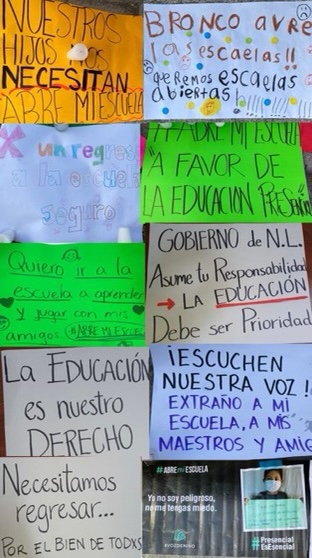 NUESTROS
HIJOS NOS
NECESITAN
ABRE MI ESCUELA
BRONCO avre
las escaelas!!
queremos escaelas
abiertas
un regreso
a la escuela
seguro
#ABRE MI ESCUELA
A FAVOR DE
LA EDUCACION PRESENCIAL
Quiero ir a la
escuela a aprender
y jugar con mis
amigos #ABRE MI ESCUELA
GOBIERNO de N.L.
Asume tu Responsabilidad
→ LA EDUCACIÓN
Debe ser Prioridad
La EDUCACIÓN
es nuestro
DERECHO
¡ESCUCHEN
NUESTRA VOZ!
EXTRAÑO A MI
ESCUELA, A MIS
MAESTROS Y AMIG
Necesitamos
regresar...
POR EL BIEN DE TODXS
#ABREMIESCUELA
Ya no soy peligroso,
no me tengas miedo.
#Presencial
EsEsencial